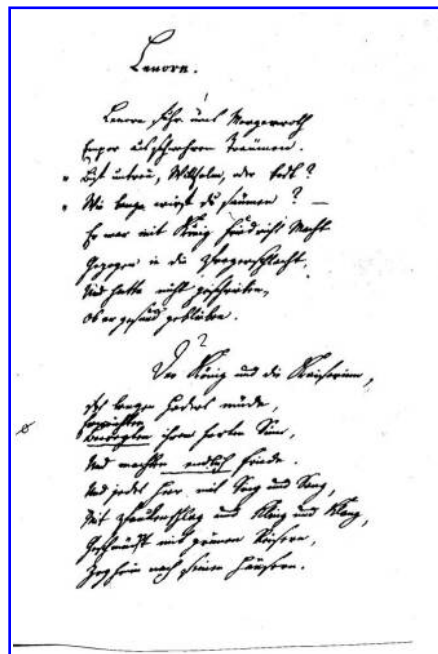 Lenore.
1
Lenore fuhr ums Morgenroth
Empor aus schweren Träumen.
" Bist untreu, Wilhelm, oder todt?
" Wie lange wirst du säumen? —
Er war mit König Friedrichs Macht
Gezogen in die Pragerschlacht,
Und hatte nicht geschrieben,
Ob er gesund geblieben.
2
Der König und die Kaiserinn,
Des langen Haders müde,
Erweichten
ihren harten Sinn,
Und machten endlich Friede.
Und jedes Heer, mit Sing und Sang,
Mit Paukenschlag und Kling und Klang,
Geschmückt mit grünen Reisern,
Zog heim nach seinen Häusern.